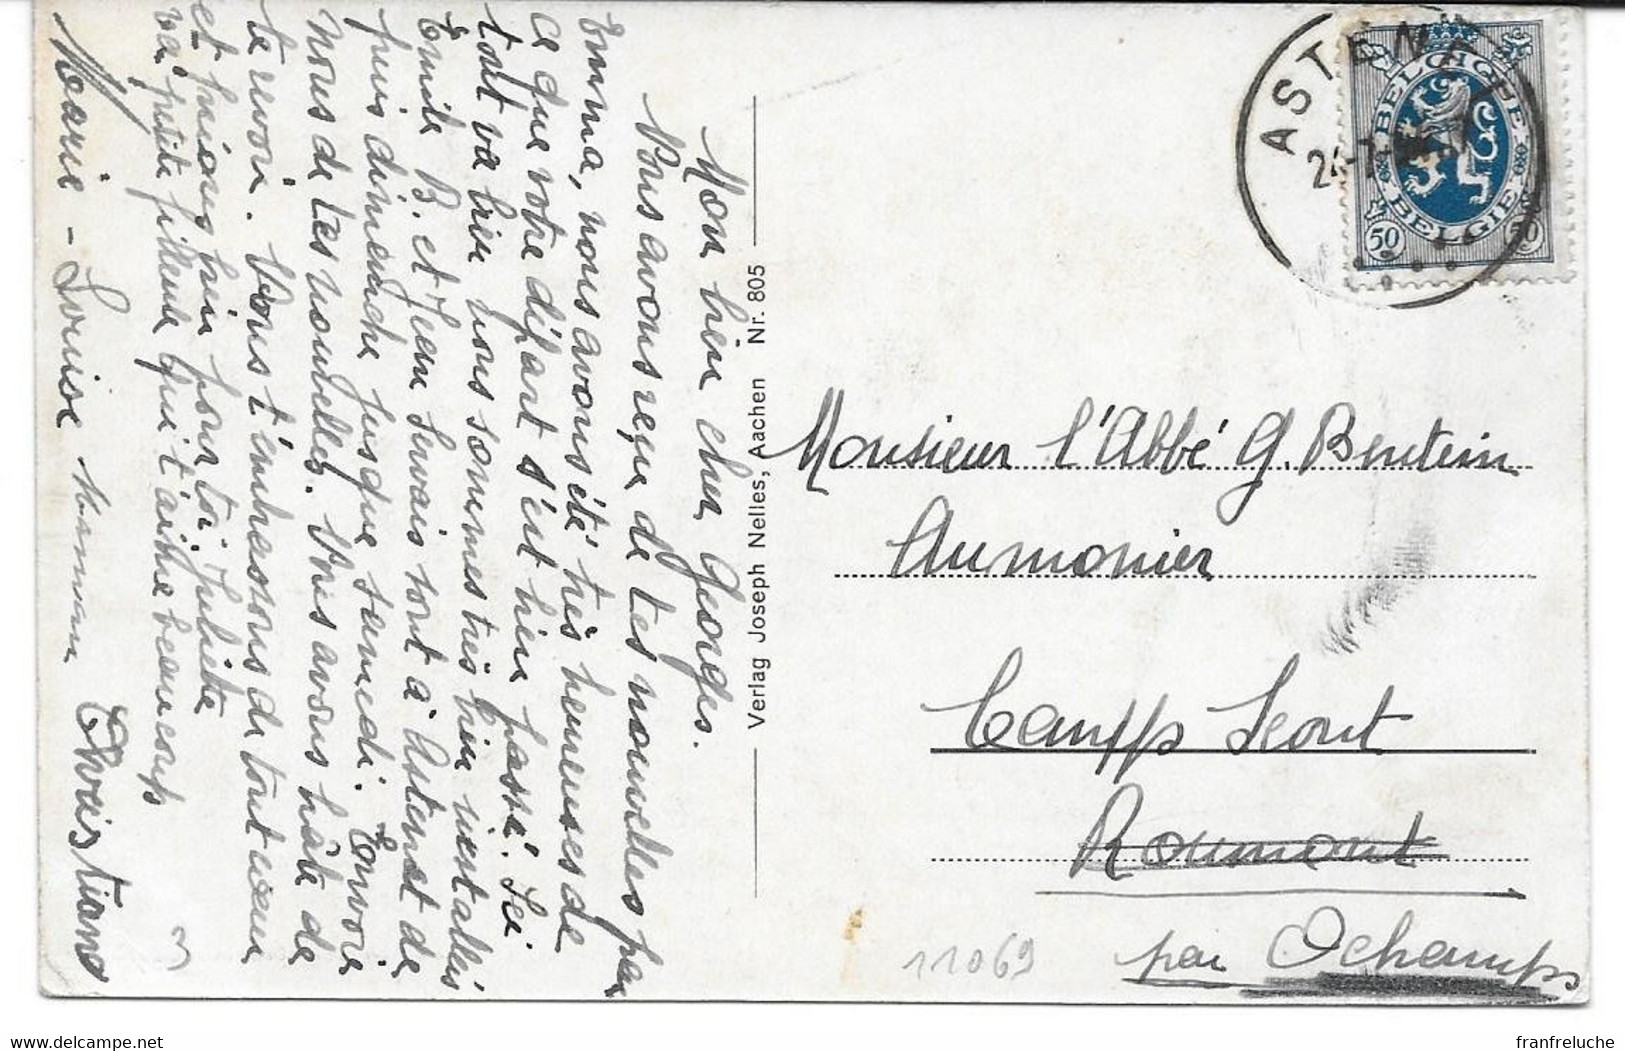 Mon bien cher Georges.
Nous avons reçu de tes nouvelles par
Emma, nous avons été très heureuses de
ce que votre départ s'est bien passé. Ici
tout va bien nous sommes très bien
Emile B. et Jean Servais sont à Astenet de
puis dimanche jusque samedi. Envoie
nous de tes nouvelles. Nous avons hâte de
te revoir. Nous t'embrassons de tout cœur
et prions bien pour toi. Juliette
ta petite filleule qui t'aime beaucoup
Marie-Louise maman Christiane
3
Verlag Joseph Nelles, Aachen Nr. 805
ASTENET
BELGIQUE
BELGIE
50 50
Monsieur l'Abbé G. Bentein
Aumonier
Camps Scout
Roumont
par Ochamps
11069
www.delcampe.net
franfreluche